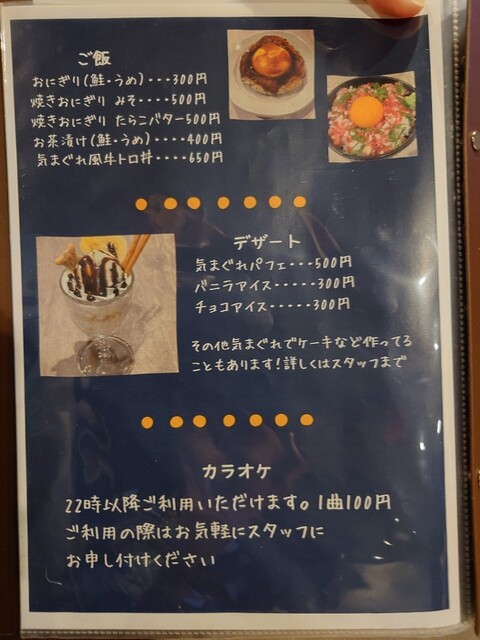 ご飯
おにぎり(鮭・うめ)・・・300円
焼きおにぎり みそ・・・・500円
焼きおにぎり たらこバター500円
お茶漬け(鮭・うめ)・・・・400円
気まぐれ風牛トロ丼・・・・650円
デザート
気まぐれパフェ・・・500円
バニラアイス・・・・・300円
チョコアイス・・・・・300円
その他気まぐれでケーキなど作ってる
こともあります!詳しくはスタッフまで
カラオケ
22時以降ご利用いただけます。1曲100円
ご利用の際はお気軽にスタッフに
お申し付けください